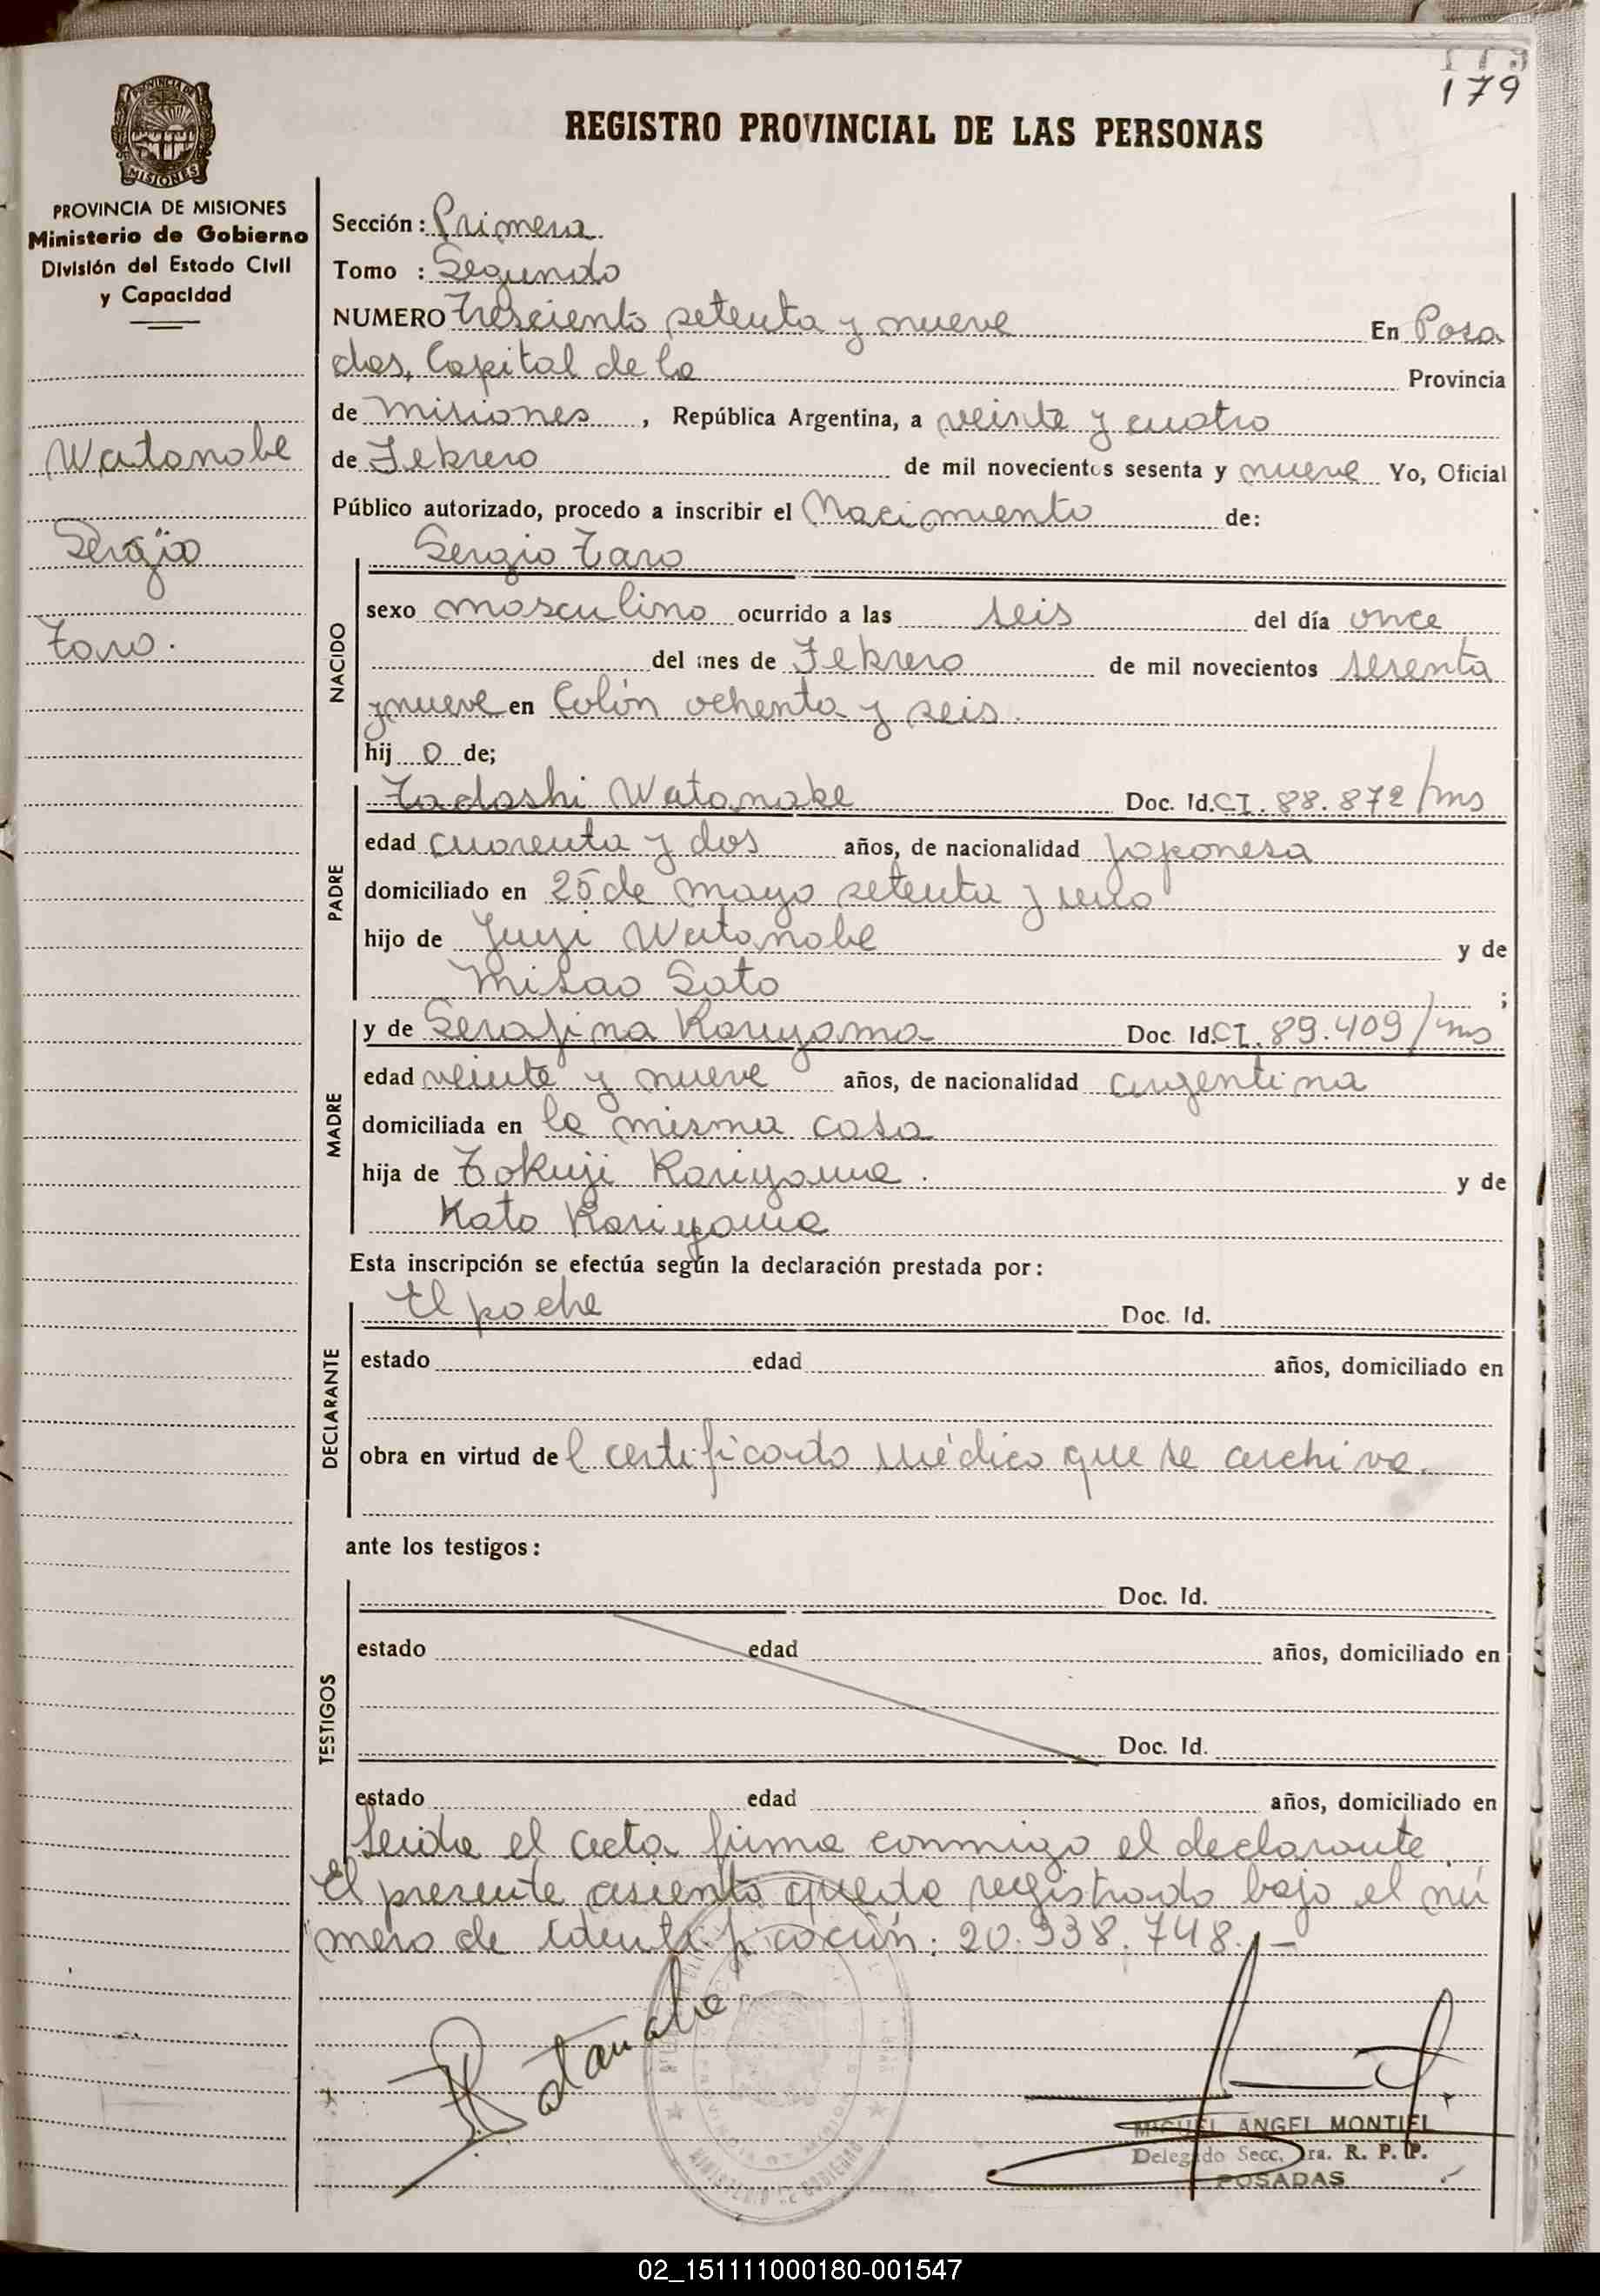 179
PROVINCIA DE MISIONES
PROVINCIA DE MISIONES
Ministerio de Gobierno
División del Estado Civil
y Capacidad
Watanabe
Sergio
Taro.
REGISTRO PROVINCIAL DE LAS PERSONAS
Sección: Primera
Tomo : Segundo
NUMERO Tresciento setenta y nueve En Posa
das, Capital de la Provincia
de Misiones, República Argentina, a veinte y cuatro
de Febrero de mil novecientos sesenta y nueve Yo, Oficial
Público autorizado, procedo a inscribir el Nacimiento de:
Sergio Taro
NACIDO
sexo masculino ocurrido a las seis del día once
del mes de Febrero de mil novecientos sesenta
y nueve en Colón ochenta y seis.
hij o de;
PADRE
Tadashi Watanabe Doc. Id. CI. 88.872/ms
edad cuarenta y dos años, de nacionalidad Japonesa
domiciliado en 25 de mayo setenta y uno
hijo de Juyi Watanabe y de
Misao Sato ;
MADRE
y de Serafina Kariyama Doc Id. CI. 89.409/ms
edad veinte y nueve años, de nacionalidad argentina
domiciliada en la misma casa
hija de Tokuji Kariyama. y de
Kato Kariyama
Esta inscripción se efectúa según la declaración prestada por:
DECLARANTE
El padre Doc. Id.
estado edad años, domiciliado en
obra en virtud del certificado médico que se archiva.
ante los testigos:
TESTIGOS
Doc. Id.
estado edad años, domiciliado en
Doc. Id.
estado edad años, domiciliado en
Leida el acta firma conmigo el declarante.
El presente asiento queda registrado bajo el nú
mero de identificación: 20.938.748.—
Watanabe
MIGUEL ANGEL MONTIEL
Delegado Secc. 1ra. R. P. P.
POSADAS
02_151111000180-001547